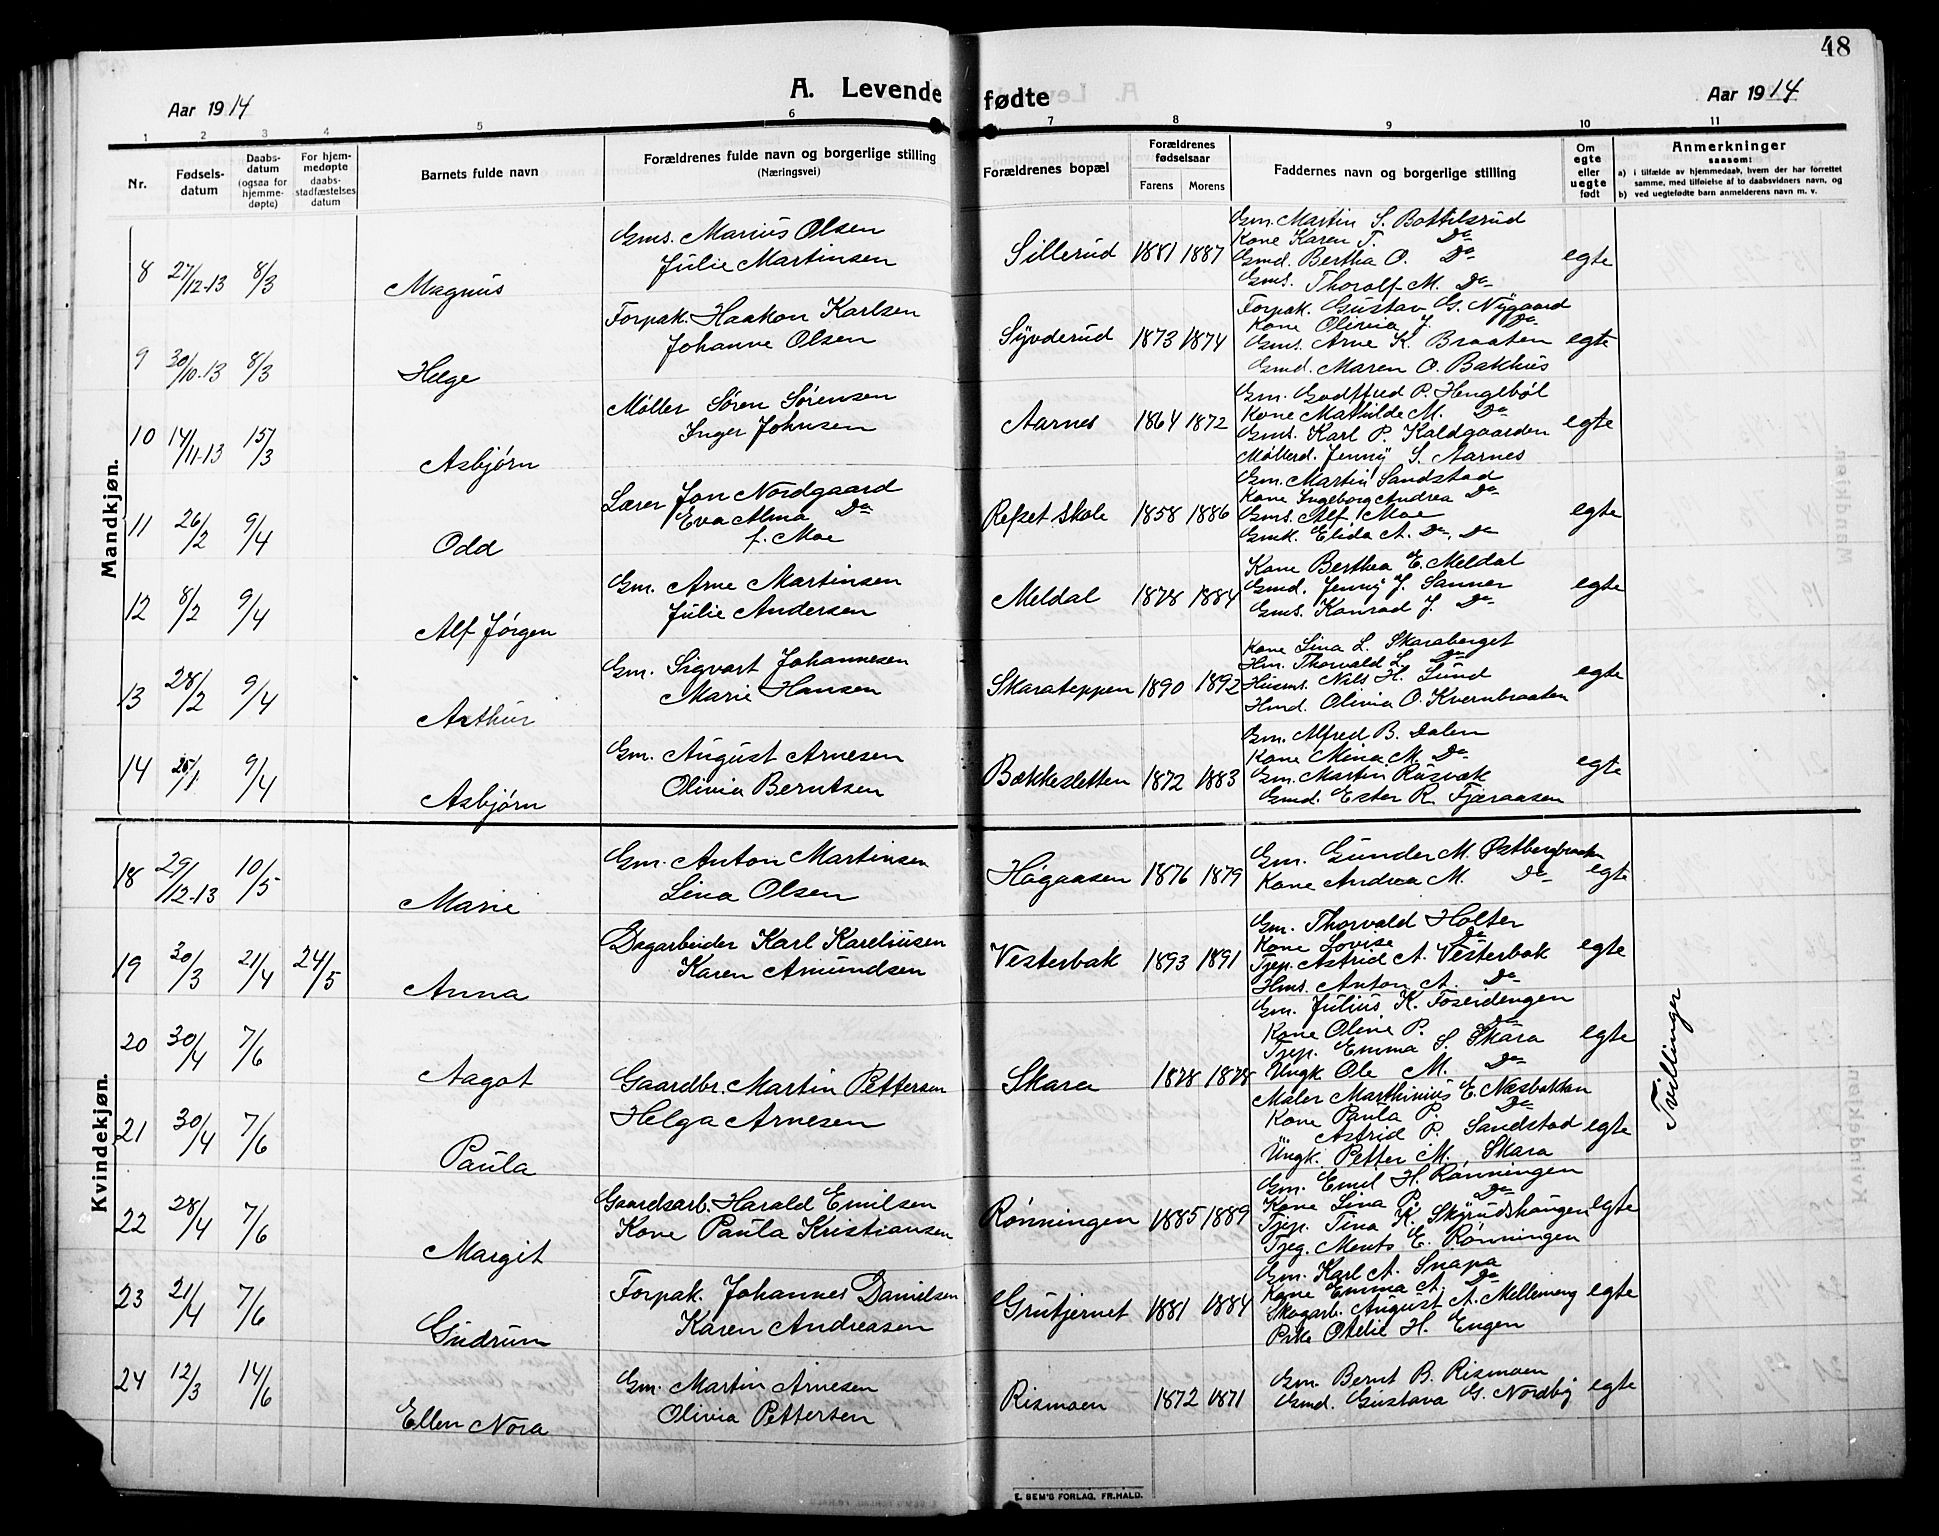 48
Aar 1914
A. Levende fødte
Aar 1914
1 2 3 4 5 6 7 8 9 10 11
Nr.
Fødsels-
datum
Daabs-
datum
(ogsaa for
hjemme-
døpte)
For hjem-
medøpte
daabs-
stadfæstelses
datum
Barnets fulde navn
Forældrenes fulde navn og borgerlige stilling
(Næringsvei)
Forældrenes bopæl
Forældrenes
fødselsaar
Farens Morens
Faddernes navn og borgerlige stilling
Om
egte
eller
uegte
født
Anmerkninger
saasom:
a) i tilfælde av hjemmedaab, hvem der har forrettet
samme, med tilføielse af to daabsvidners navn, og
b) ved uegtefødte barn anmelderens navn m. v.
Mandkjøn.
8 27/12-13 8/3 Magnus
Gms. Marius Olsen
Julie Martinsen
Sillerud 1881 1887
Gm. Martin S. Bottilsrud
Kone Karen T. Do
Gmd. Bertha O. Do
Gms. Thorolf M. Do
egte
9 30/10-13 8/3 Helge
Forpak. Haakon Karlsen
Johanne Olsen
Syvderud 1873 1874
Forpak. Gustav G. Nygaard
Kone Olivia J. Do
Gms. Arne K. Braaten
Gmd. Maren O. Bakhus
egte
10 14/11-13 15/3 Asbjørn
Møller Søren Sørensen
Inger Johnsen
Aarnes 1864 1872
Gm. Godtfred P. Hengebøl
Kone Mathilde M. Do
Gms. Karl P. Kaldgaarden
Møllerd. Jenny S. Aarnes
egte
11 26/2 9/4 Odd
Lærer Jon Nordgaard
Eva Alma Do
f. Moe
Refset skole 1858 1886
Gm. Martin Sandstad
Kone Ingeborg Andrea Do
Gms. Alf Moe
Gmk. Elida A. Do, Do
egte
12 8/2 9/4 Alf Jørgen
Gm. Arne Martinsen
Julie Andersen
Meldal 1878 1884
Kone Berthea E. Meldal
Gmd. Jenny J. Sanner
Gms. Konrad J. Do
egte
13 28/2 9/4 Arthur
Gm. Sigvart Johannesen
Marie Hansen
Skarateppen 1890 1892
Kone Lina L. Skaraberget
Hm. Thorvald L. Do
Husms. Nils H. Lund
Hmd. Olivia O. Kvernbraaten
egte
14 25/1 9/4 Asbjørn
Gm. August Arnesen
Olivia Berntsen
Bækkesletten 1872 1883
Gm. Alfred B. Dalen
Kone Mina M. Do
Gm. Martin Rusvak
Gmd. Ester R. Fjæraasen
egte
Kvindekjøn.
18 29/12-13 10/5 Marie
Gm. Anton Martinsen
Lina Olsen
Høgaasen 1876 1879
Gm. Gunder M. Østbergbraaten
Kone Andrea M. Do
egte
19 30/3 21/4 24/5 Anna
Dagarbeider Karl Kareliusen
Karen Amundsen
Vesterbak 1893 1891
Gm. Thorvald Holter
Kone Lovise Do
Tjep. Astrid A. Vesterbak
Hms. Anton A. Do
egte
20 30/4 7/6 Aagot
Gaardbr. Martin Pettersen
Helga Arnesen
Skara 1878 1878
Gm. Julius K. Foseidengen
Kone Oline P. Do
Tjep. Emma S. Skara
Ungk. Ole M. Do
egte
Tvillinger
21 30/4 7/6 Paula
Maler Marthinius E. Næsbakken
Kone Paula P. Do
Astrid P. Sandstad
Ungk. Petter M. Skara
egte
22 28/4 7/6 Margit
Gaardsarb. Harald Emilsen
Kone Paula Kristiansen
Rønningen 1885 1889
Gm. Emil H. Rønningen
Kone Lina P. Do
Tjep. Tina K. Skyrudshaugen
Tjeg. Ments E. Rønningen
egte
23 21/4 7/6 Gudrun
Forpak. Johannes Danielsen
Karen Andreasen
Grutjernet 1881 1884
Gm. Karl A. Snapa
Kone Emma A. Do
Skogarb. August A. Melleneng
Pike Otelie H. Engen
egte
24 12/3 14/6 Ellen Nora
Gm. Martin Arnesen
Olivia Pettersen
Rismoen 1872 1871
Gm. Bernt B. Rismoen
Gmd. Gustava G. Nordby
egte
E. SEM'S FORLAG, FR.HALD.